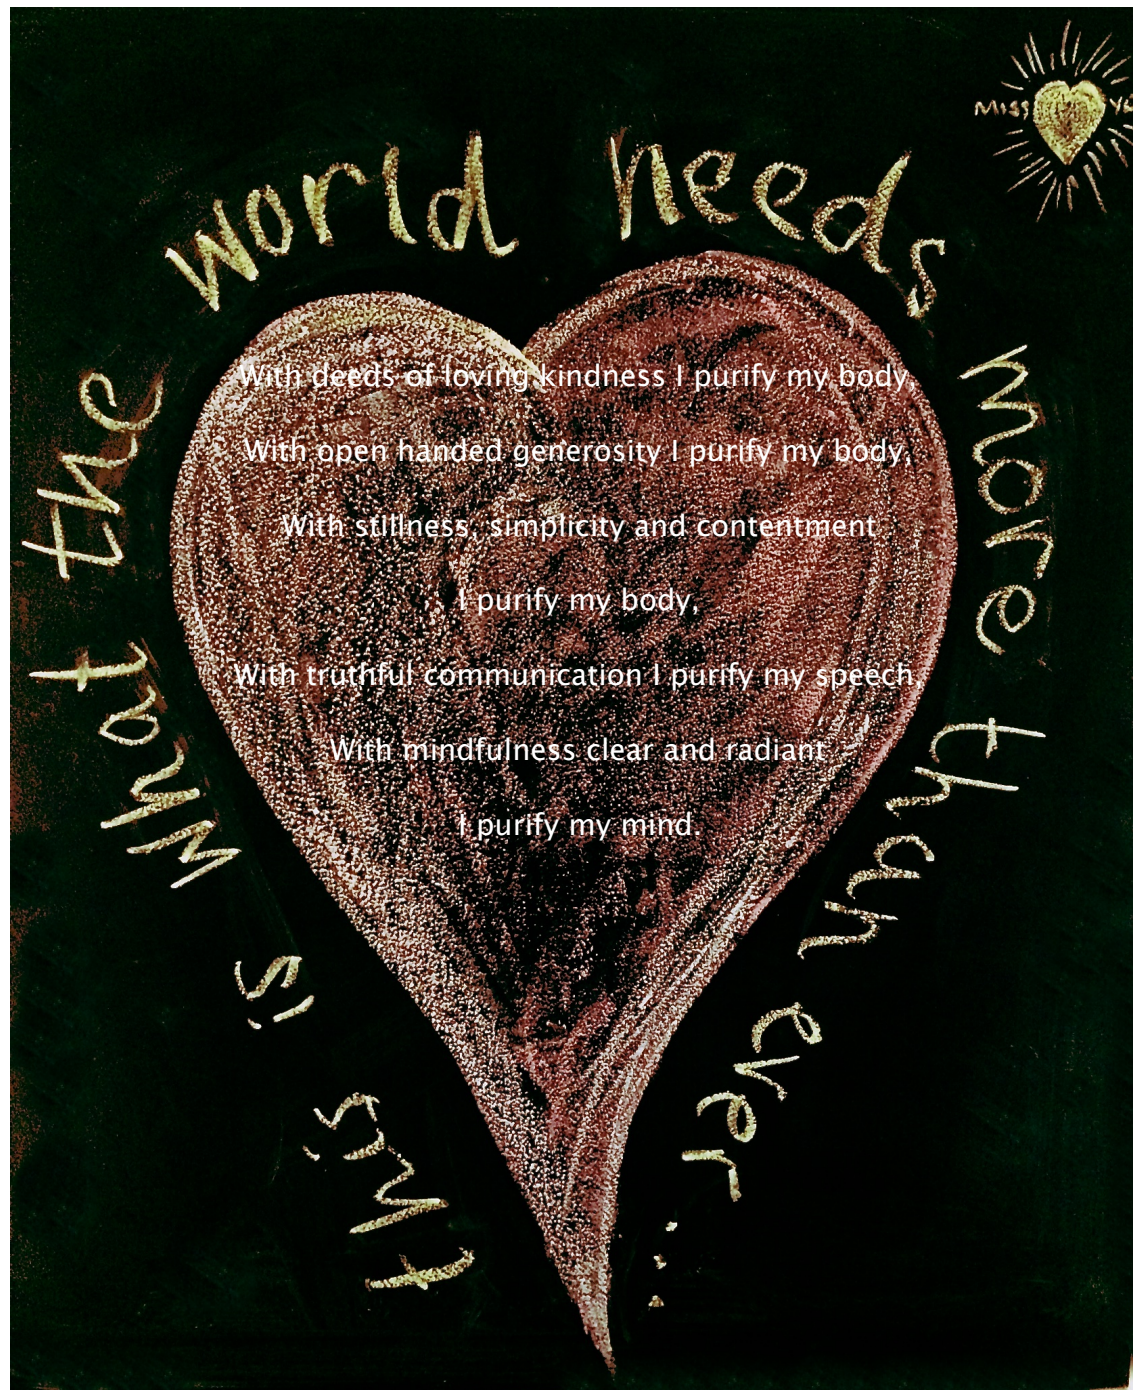 this is what the world needs more than ever...
Miss
With deeds of loving kindness I purify my body,
With open handed generosity I purify my body,
With stillness, simplicity and contentment
I purify my body,
With truthful communication I purify my speech
With mindfulness clear and radiant
I purify my mind.